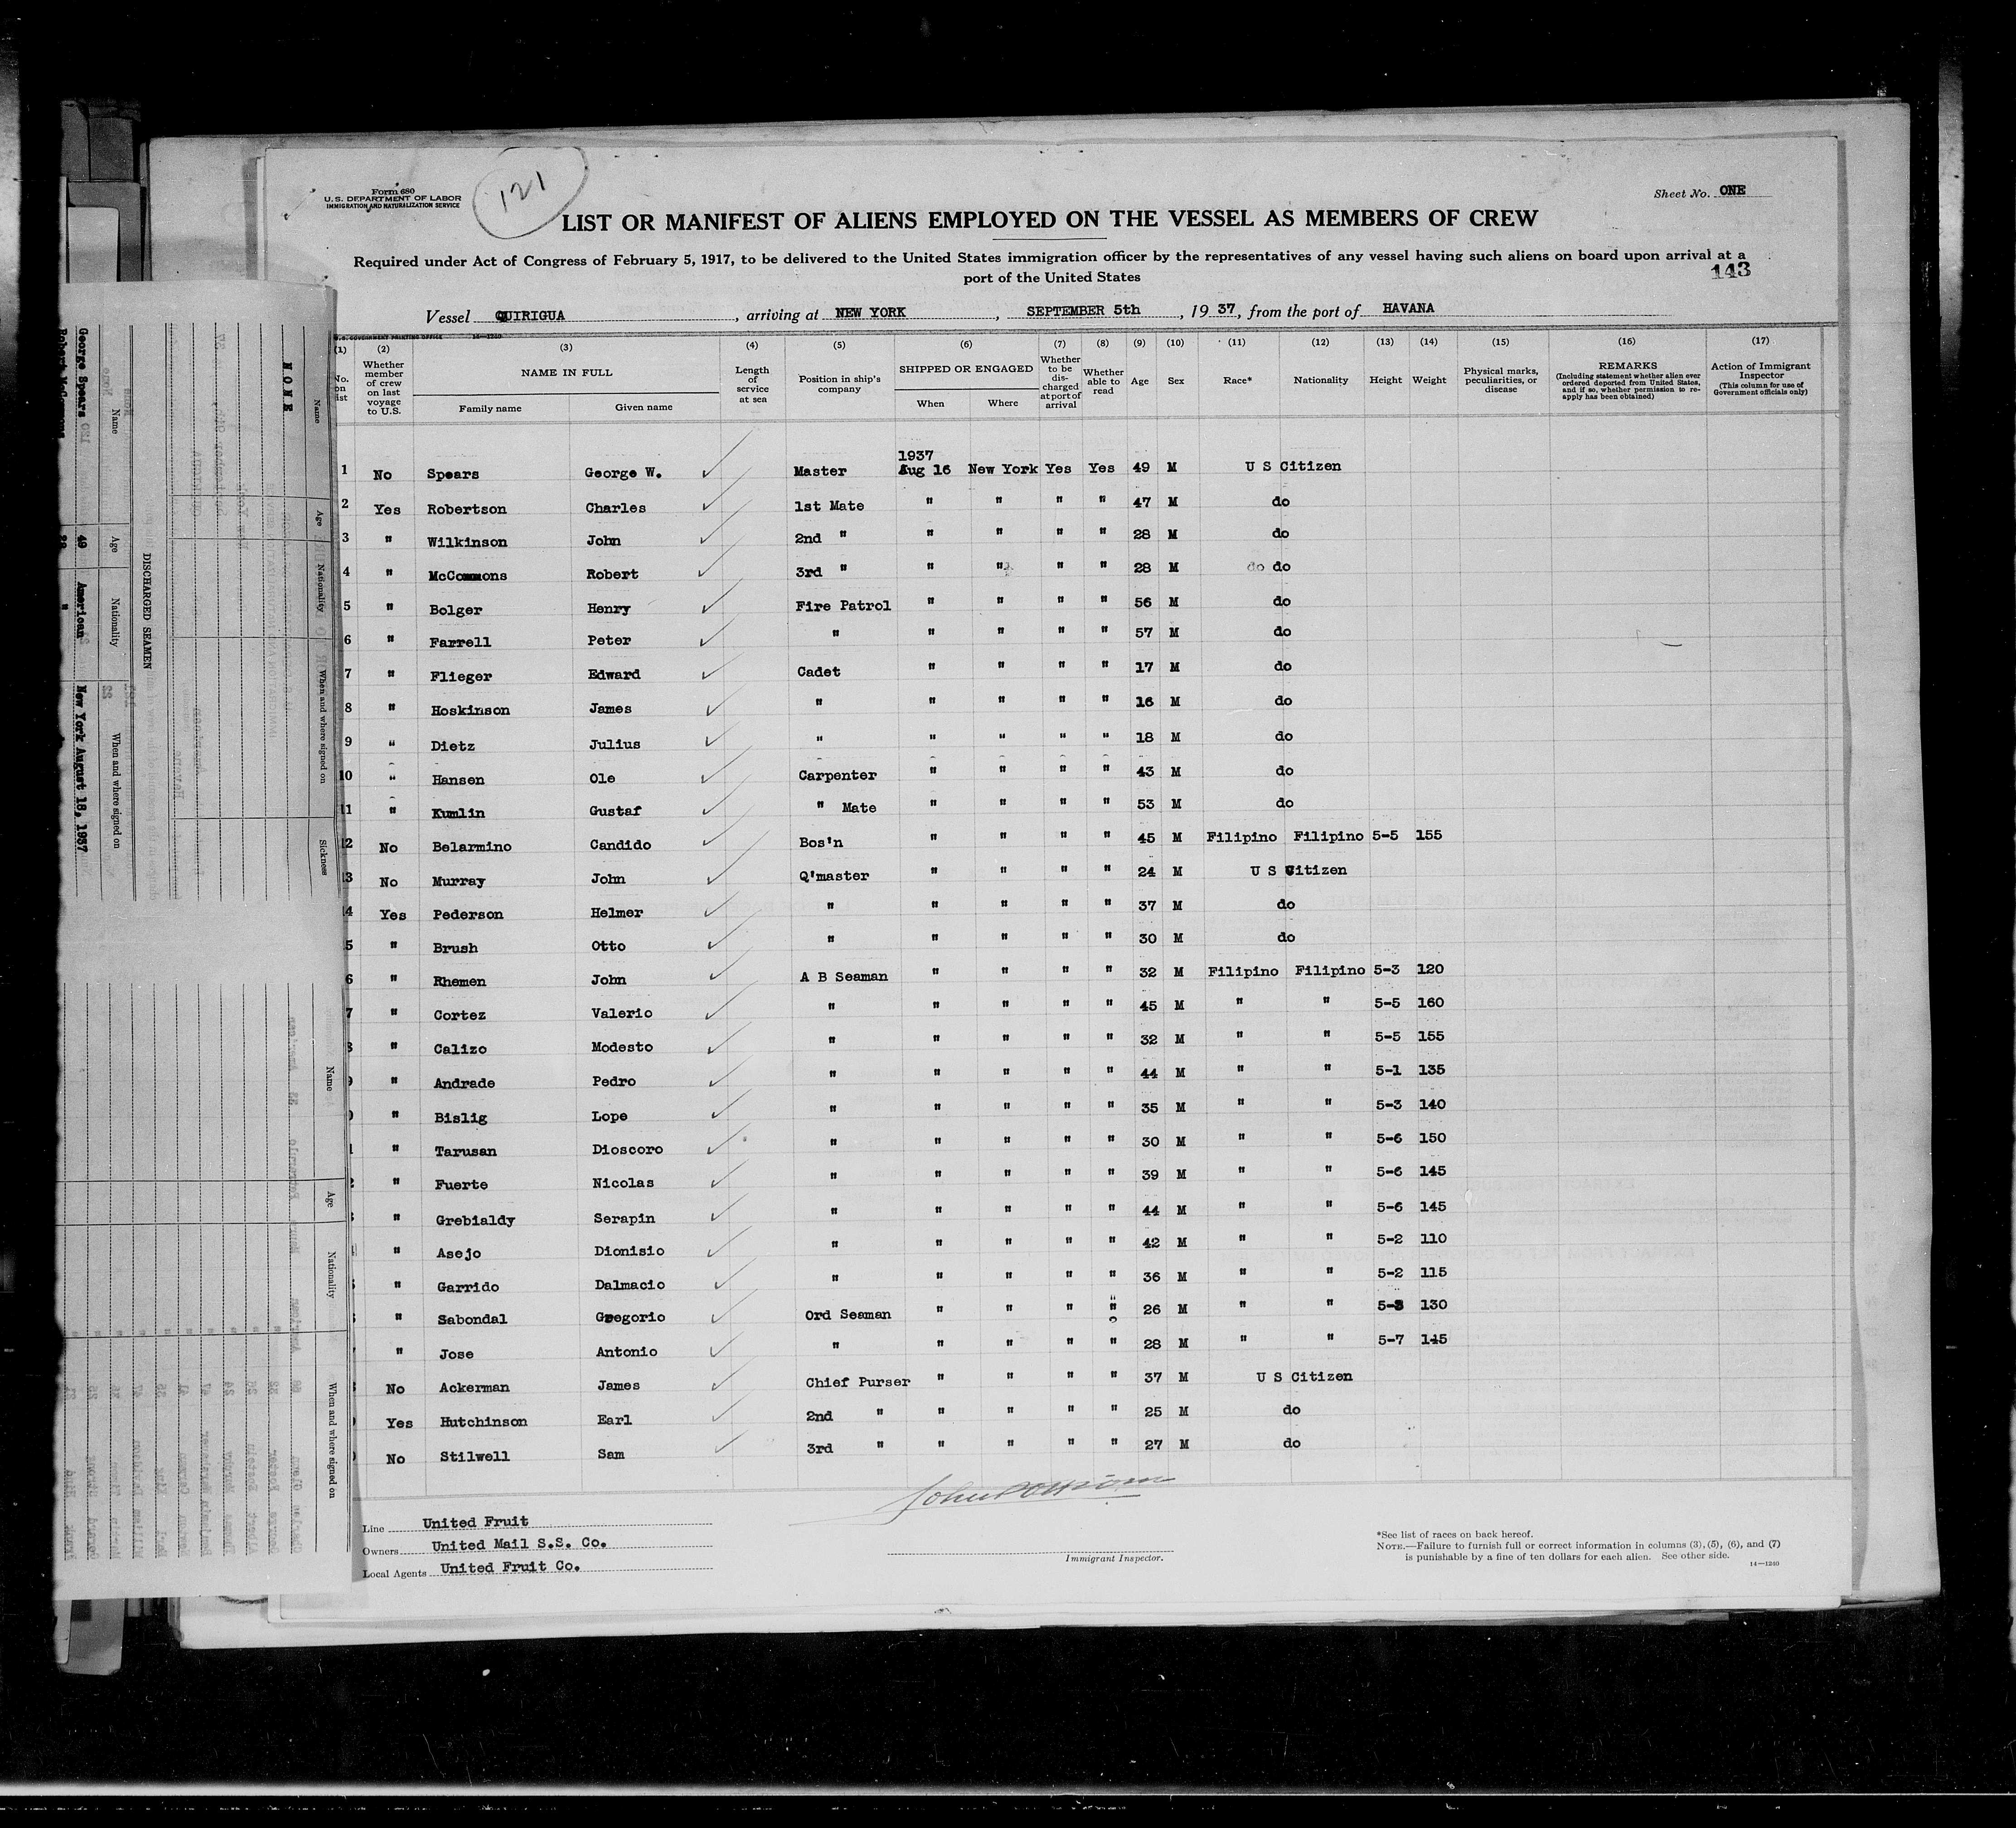 121
Form 680
U. S. DEPARTMENT OF LABOR
IMMIGRATION AND NATURALIZATION SERVICE
Sheet No. ONE
LIST OR MANIFEST OF ALIENS EMPLOYED ON THE VESSEL AS MEMBERS OF CREW
Required under Act of Congress of February 5, 1917, to be delivered to the United States immigration officer by the representatives of any vessel having such aliens on board upon arrival at a
port of the United States
143
Vessel QUIRIGUA, arriving at NEW YORK, SEPTEMBER 5th, 19 37, from the port of HAVANA
U.S. GOVERNMENT PRINTING OFFICE 14—1240
(1) (2) (3) (4) (5) (6) (7) (8) (9) (10) (11) (12) (13) (14) (15) (16) (17)
No. on list
Whether member of crew on last voyage to U.S.
NAME IN FULL
Family name Given name
Length of service at sea
Position in ship's company
SHIPPED OR ENGAGED
When Where
Whether to be discharged at port of arrival
Whether able to read
Age Sex Race* Nationality Height Weight
Physical marks, peculiarities, or disease
REMARKS
(Including statement whether alien ever ordered deported from United States, and if so, whether permission to reapply has been obtained)
Action of Immigrant Inspector
(This column for use of Government officials only)
1937
1 No Spears George W. Master Aug 16 New York Yes Yes 49 M U S Citizen
2 Yes Robertson Charles 1st Mate " " " " 47 M do
3 " Wilkinson John 2nd " " " " " 28 M do
4 " McCommons Robert 3rd " " " " " 28 M do do
5 " Bolger Henry Fire Patrol " " " " 56 M do
6 " Farrell Peter " " " " " 57 M do
7 " Flieger Edward Cadet " " " " 17 M do
8 " Hoskinson James " " " " " 16 M do
9 " Dietz Julius " " " " " 18 M do
10 " Hansen Ole Carpenter " " " " 43 M do
11 " Kumlin Gustaf " Mate " " " " 53 M do
12 No Belarmino Candido Bos'n " " " " 45 M Filipino Filipino 5-5 155
3 No Murray John Q'master " " " " 24 M U S Citizen
4 Yes Pederson Helmer " " " " " 37 M do
5 " Brush Otto " " " " " 30 M do
6 " Rhemen John A B Seaman " " " " 32 M Filipino Filipino 5-3 120
7 " Cortez Valerio " " " " " 45 M " " 5-5 160
" Calizo Modesto " " " " " 32 M " " 5-5 155
" Andrade Pedro " " " " " 44 M " " 5-1 135
" Bislig Lope " " " " " 35 M " " 5-3 140
" Tarusan Dioscoro " " " " " 30 M " " 5-6 150
" Fuerte Nicolas " " " " " 39 M " " 5-6 145
" Grebialdy Serapin " " " " " 44 M " " 5-6 145
" Asejo Dionisio " " " " " 42 M " " 5-2 110
" Garrido Dalmacio " " " " " 36 M " " 5-2 115
" Sabondal Gregorio Ord Seaman " " " " 26 M " " 5-8 130
" Jose Antonio " " " " " 28 M " " 5-7 145
No Ackerman James Chief Purser " " " " 37 M U S Citizen
Yes Hutchinson Earl 2nd " " " " " 25 M do
No Stilwell Sam 3rd " " " " " 27 M do
Line United Fruit
Owners United Mail S.S. Co.
Local Agents United Fruit Co.
Immigrant Inspector.
*See list of races on back hereof.
NOTE.—Failure to furnish full or correct information in columns (3), (5), (6), and (7)
is punishable by a fine of ten dollars for each alien. See other side.
14—1240
Name Age Nationality When and where signed on Sickness
NONE
DISCHARGED SEAMEN
Name Age Nationality When and where signed on
George Spears 49 American New York August 16, 1937
Name Age Nationality When and where signed on